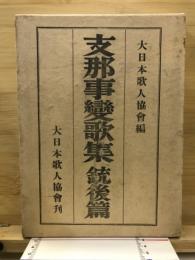 大日本歌人協會編
支那事變歌集 銃後篇
大日本歌人協會刊